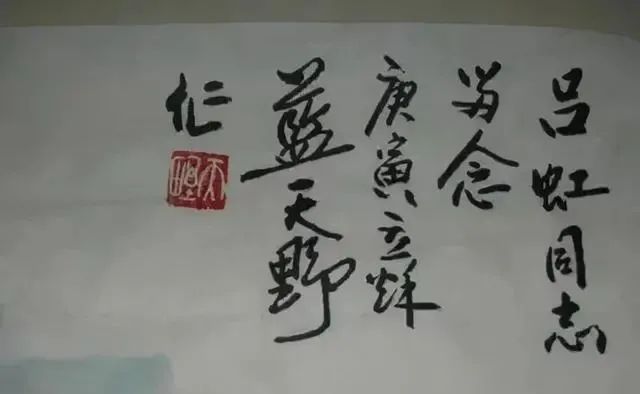 吕虹同志
留念
庚寅立秌
蓝天野
作
天野